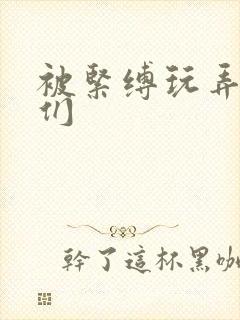 被緊缚玩弄
们
幹了這杯黑咖